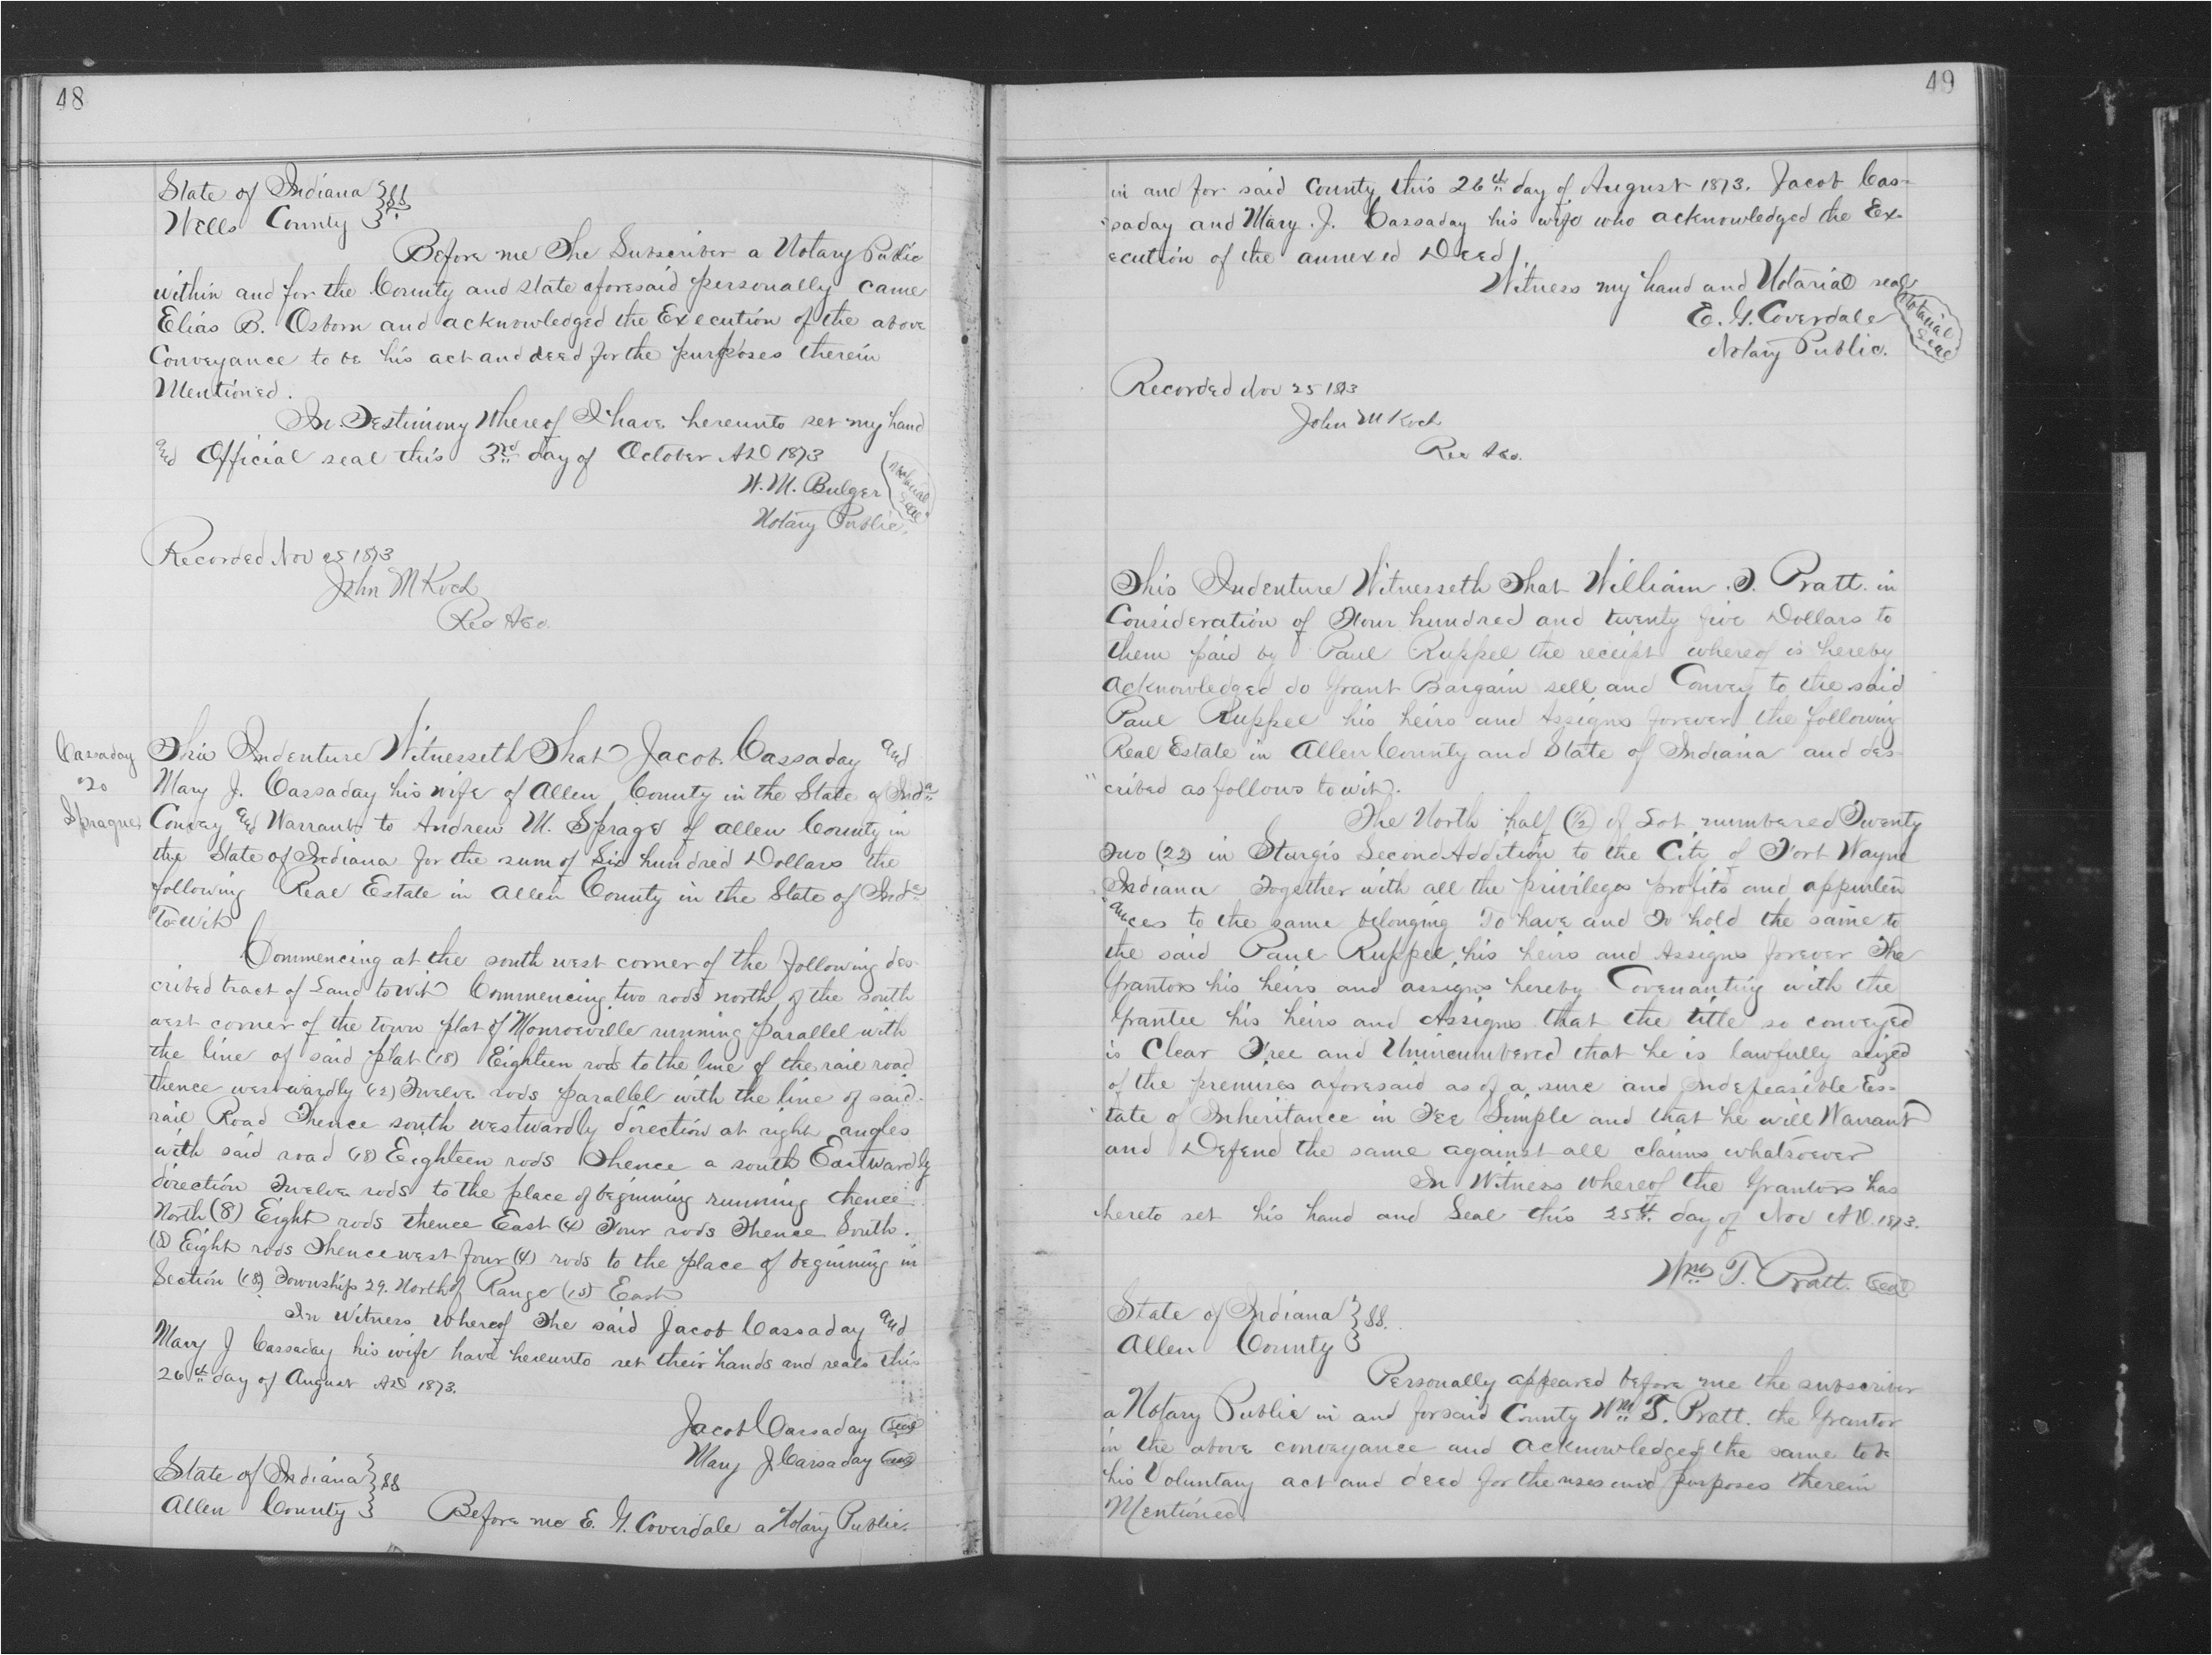 48
State of Indiana } ss.
Wells County }
Before me The Subscriber a Notary Public
within and for the County and state aforesaid personally came
Elias B. Osborn and acknowledged the Execution of the above
Conveyance to be his act and deed for the purposes therein
Mentioned.
In Testimony Whereof I have hereunto set my hand
and Official seal this 3rd day of October AD 1873
W. M. Bulger
Notary Public.
Notarial Seal
Recorded Nov 25 1873
John M Koch
Rec A Co.
Cassaday
To
Sprague
This Indenture Witnesseth That Jacob Cassaday and
Mary J. Cassaday his wife of Allen County in the State of Inda
Convey and Warrant to Andrew M. Sprage of allen County in
the State of Indiana for the sum of Six hundred Dollars the
following Real Estate in Allen County in the State of Inda
To-wit
Commencing at the south west corner of the following des-
cribed tract of Land towit Commencing two rods north of the south
west corner of the town plat of Monroeville running parallel with
the line of said plat (18) Eighteen rods to the line of the rail road
thence westwardly (12) Twelve rods parallel with the line of said
rail Road Thence south westwardly direction at right angles
with said road (18) Eighteen rods Thence a south Eastwardly
direction Twelve rods to the place of beginning running thence
North (8) Eight rods thence East (4) Four rods Thence South.
(8) Eight rods Thence west four (4) rods to the place of beginning in
Section (18) Township 29. North of Range (15) East
In Witness Whereof The said Jacob Cassaday and
Mary J Cassaday his wife have hereunto set their hands and seals this
26th day of August AD 1873.
Jacob Cassaday Seal
Mary J Cassaday Seal
State of Indiana } ss
Allen County }
Before me E. G. Coverdale a Notary Public.
49
in and for said County this 26th day of August 1873. Jacob Cas-
saday and Mary. J. Cassaday his wife who acknowledged the Ex-
ecution of the annexed Deed.
Witness my hand and Notarial seal
E. G. Coverdale
Notary Public.
Notarial Seal
Recorded Nov 25 1873
John M Koch
Rec A Co.
This Indenture Witnesseth That William. T. Pratt. in
Consideration of Four hundred and twenty five Dollars to
them paid by Paul Ruppel the receipt whereof is hereby
Acknowledged do Grant Bargain sell and Convey to the said
Paul Ruppel his heirs and Assigns forever the following
Real Estate in Allen County and State of Indiana and des-
cribed as follows towit.
The North half (1/2) of Lot numbered Twenty
Two (22) in Sturgis Second Addition to the City of Fort Wayne
Indiana Together with all the privileges profits and appurten
ances to the same belonging To have and To hold the same to
the said Paul Ruppel his heirs and Assigns forever The
Grantors his heirs and assigns hereby Covenanting with the
Grantee his heirs and Assigns that the title so conveyed
is Clear Free and Unincumbered that he is lawfully seized
of the premises aforesaid as of a sure and Indefeasible Es-
tate of Inheritance in Fee Simple and that he will Warrant
and Defend the same against all claims whatsoever
In Witness whereof the Grantors has
hereto set his hand and Seal this 25th. day of Nov AD. 1873.
Wm T. Pratt. Seal
State of Indiana } ss.
Allen County }
Personally appeared before me the subscriber
a Notary Public in and for said County Wm T. Pratt. the Grantor
in the above conveyance and acknowledged the same to be
his Voluntary act and deed for the uses and purposes therein
Mentioned.